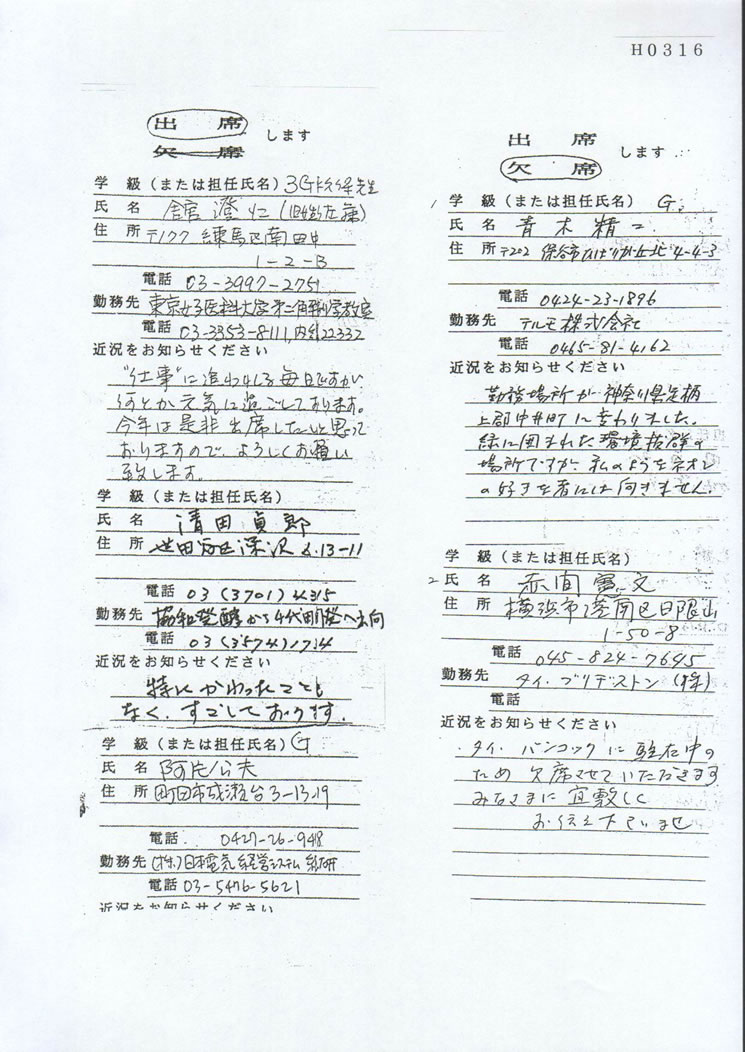 H0316
出 席
欠 席
します
学 級(または担任氏名) 3G 先生
氏 名 澄仁(旧姓佐藤)
住 所 〒177 練馬区南田中
1-2-B
電話 03-3997-2751
勤務先 東京女子医科大学第二 学教室
電話 03-3353-8111, 内線22332
近況をお知らせください
"仕事"に追われる毎日ですが
何とか元気に過ごしております。
今年は是非出席したいと思って
おりますので、よろしくお願い
致します。
学 級(または担任氏名)
氏 名 清田貞郎
住 所 世田谷区深沢 2.13-11
電話 03(3701)4315
勤務先 協和発酵から千代田開発へ出向
電話 03(3574)1714
近況をお知らせください
特にかわったことも
なく、すごしております.
学 級(または担任氏名) G
氏 名 阿片公夫
住 所 町田市成瀬台3-13-19
電話. 0427-26-9418
勤務先 (株)日本電気経営システム
電話 03-5476-5621
近況をお知らせください
出 席
欠 席
します
1 学 級(または担任氏名) G.
氏 名 青木精二
住 所 〒202 保谷市ひばりが丘北4-4-3
電話 0424-23-1896
勤務先 テルモ株式会社
電話 0465-81-4162
近況をお知らせください
勤務場所が神奈川県足柄
上郡中井町に変わりました。
緑に囲まれた環境抜群の
場所ですが、私のようなネオン
の好きな者には向きません.
学 級(または担任氏名)
2 氏 名 赤間 文
住 所 横浜市港南区日限山
1-50-8
電話 045-824-7645
勤務先 タイ・ブリヂストン(株)
電話
近況をお知らせください
タイ、バンコックに駐在中の
ため欠席させていただきます
みなさまに宜敷しく
お伝え下さいませ